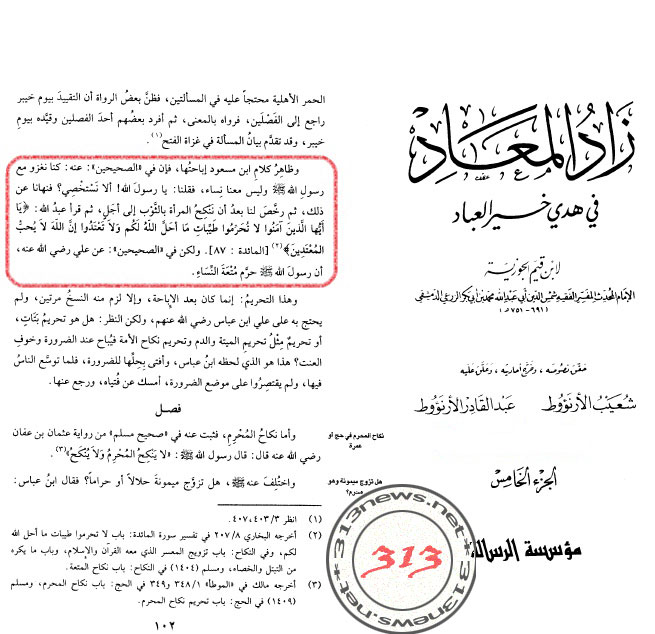 زاد المعاد
في هدي خير العباد
لابن قيم الجوزية
الإمام المحدث المفسر الفقيه شمس الدين أبي عبد الله محمد بن أبي بكر الزرعي الدمشقي
(٦٩١ - ٧٥١ هـ)
حقق نصوصه، وخرج أحاديثه، وعلق عليه
شعيب الأرنؤوط عبد القادر الأرنؤوط
الجزء الخامس
مؤسسة الرسالة
الحمر الأهلية محتجاً عليه في المسألتين، فظنَّ بعضُ الرواة أن التقييدَ بيوم خيبر
راجع إلى الفَصْلَين، فرواه بالمعنى، ثم أفرد بعضُهم أحدَ الفصلين وقيَّده بيومِ
خيبر، وقد تقدَّم بيانُ المسألة في غزاة الفتح(١).
وظاهِرُ كلامِ ابن مسعود إباحتُها، فإن في «الصحيحين»: عنه: كنا نغزو مع
رسولِ الله ﷺ وليس معنا نِساء، فقلنا: يا رسولَ الله! ألا نَسْتَخْصِي؟ فنهانا عن
ذلك، ثم رخَّصَ لنا بعدُ أن نَنْكِحَ المرأة بالثَّوْبِ إلى أجَلٍ، ثم قرأ عبدُ الله: ﴿يَا
أَيُّها الَّذينَ آمَنُوا لا تُحَرِّمُوا طَيِّبَاتِ مَا أحَلَّ اللَّهُ لَكُم وَلَا تَعْتَدُوا إنَّ اللَّهَ لا يُحِبُّ
المُعْتَدِينَ﴾(٢) [المائدة : ٨٧]. ولكن في «الصحيحين»: عن علي رضي الله عنه،
أن رسولَ الله ﷺ حرَّم مُتْعَةَ النِّسَاءِ.
وهذا التحريمُ: إنما كان بعد الإِباحة، وإلا لزم منه النسخُ مرتين، ولم
يحتج به على علي ابن عباس رضي الله عنهم، ولكن النظر: هل هو تحريمُ بَتَاتٍ،
أو تحريمٌ مِثْلُ تحريمِ الميتة والدم وتحريمِ نكاح الأمة فيُباح عند الضرورة وخوفِ
العنت؟ هذا هو الذي لحظه ابنُ عباس، وأفتى بِحلِّها للضرورة، فلما توسَّع الناسُ
فيها، ولم يقتصِرُوا على موضع الضرورة، أمسك عن فُتياه، ورجع عنها.
فصل
نكاح المحرم في حج او
عمرة
وأما نكاحُ المُحْرِمِ، فثبت عنه في «صحيح مسلم» من رواية عثمان بن عفان
رضي الله عنه قال: قال رسول الله ﷺ: «لا يَنْكِحُ المُحْرِمُ وَلاَ يُنْكَحُ»(٣).
هل تزوج ميمونة وهو
محرم؟
واختُلِفَ عنه ﷺ، هل تزوَّج ميمونةَ حلالاً أو حراماً؟ فقال ابنُ عباس:
(١) انظر ٤٠٣/٣، ٤٠٧.
(٢) أخرجه البخاري ٢٠٧/٨ في تفسير سورة المائدة: باب لا تحرموا طيبات ما أحل الله
لكم، وفي النكاح: باب تزويج المعسر الذي معه القرآن والإسلام، وباب ما يكره
من التبتل والخصاء، ومسلم (١٤٠٤) في النكاح: باب نكاح المتعة.
(٣) أخرجه مالك في «الموطأ» ٣٤٨/١ و٣٤٩ في الحج: باب نكاح المحرم، ومسلم
(١٤٠٩) في الحج: باب تحريم نكاح المحرم.
١٠٢
313news.net*313news.net*
313